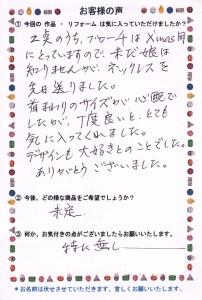 お客様の声
① 今回の 作品 ・ リフォーム は気に入っていただけましたか?
2点のうち、ブローチは Xmas用
にとっていますので、まだ娘は
知りませんが、ネックレスを
先日送りました。
首まわりのサイズが心配で
したが、丁度良いと、とても
気に入ってくれました。
デザインも大好きとのことでした。
ありがとうございました。
② 今後、どの様な商品をご希望でしょうか?
未定
③ 何か、お気付きの点がございましたらお願いいたします。
特に無し
* お名前は伏せさせていただきます。宜しくお願いいたします。